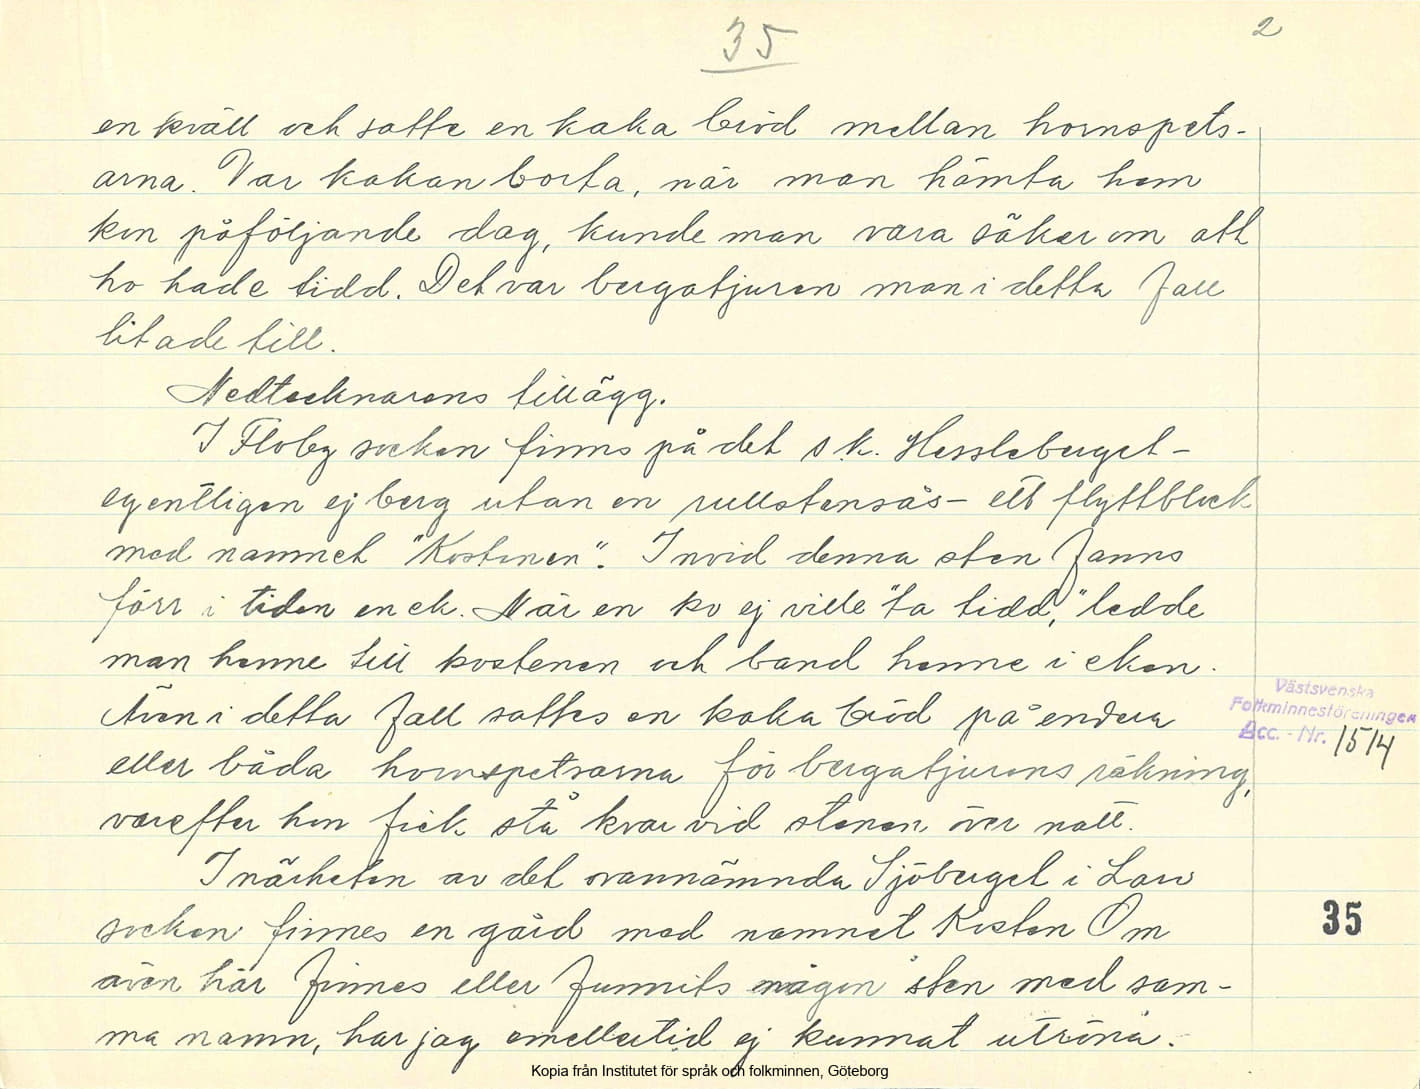 35
2
en kväll och satte en kaka bröd mellan hornspets-
arna. Var kakan borta, när man hämta hem
kon påföljande dag, kunde man vara säker om att
ho hade tidd. Det var bergatjuren man i detta fall
litade till.
Nedtecknarens tillägg.
I Floby socken finns på det s.k. Hessleberget -
egentligen ej berg utan en rullstensås - ett flyttblock
med namnet "Kostenen". Invid denna sten fanns
förr i tiden en ek. När en ko ej ville "ta tidd," ledde
man henne till kostenen och band henne i eken.
Även i detta fall sattes en kaka bröd på endera
eller båda hornspetsarna för bergatjurens räkning,
varefter hon fick stå kvar vid stenen över natt.
I närheten av det ovannämnda Sjöberget i Larv
socken finnes en gård med namnet Kosten Om
även här finnes eller funnits någon sten med sam-
ma namn, har jag emellertid ej kunnat utröna.
Västsvenska
Folkminnesföreningen
Acc. - Nr. 1514
35
Kopia från Institutet för språk och folkminnen, Göteborg